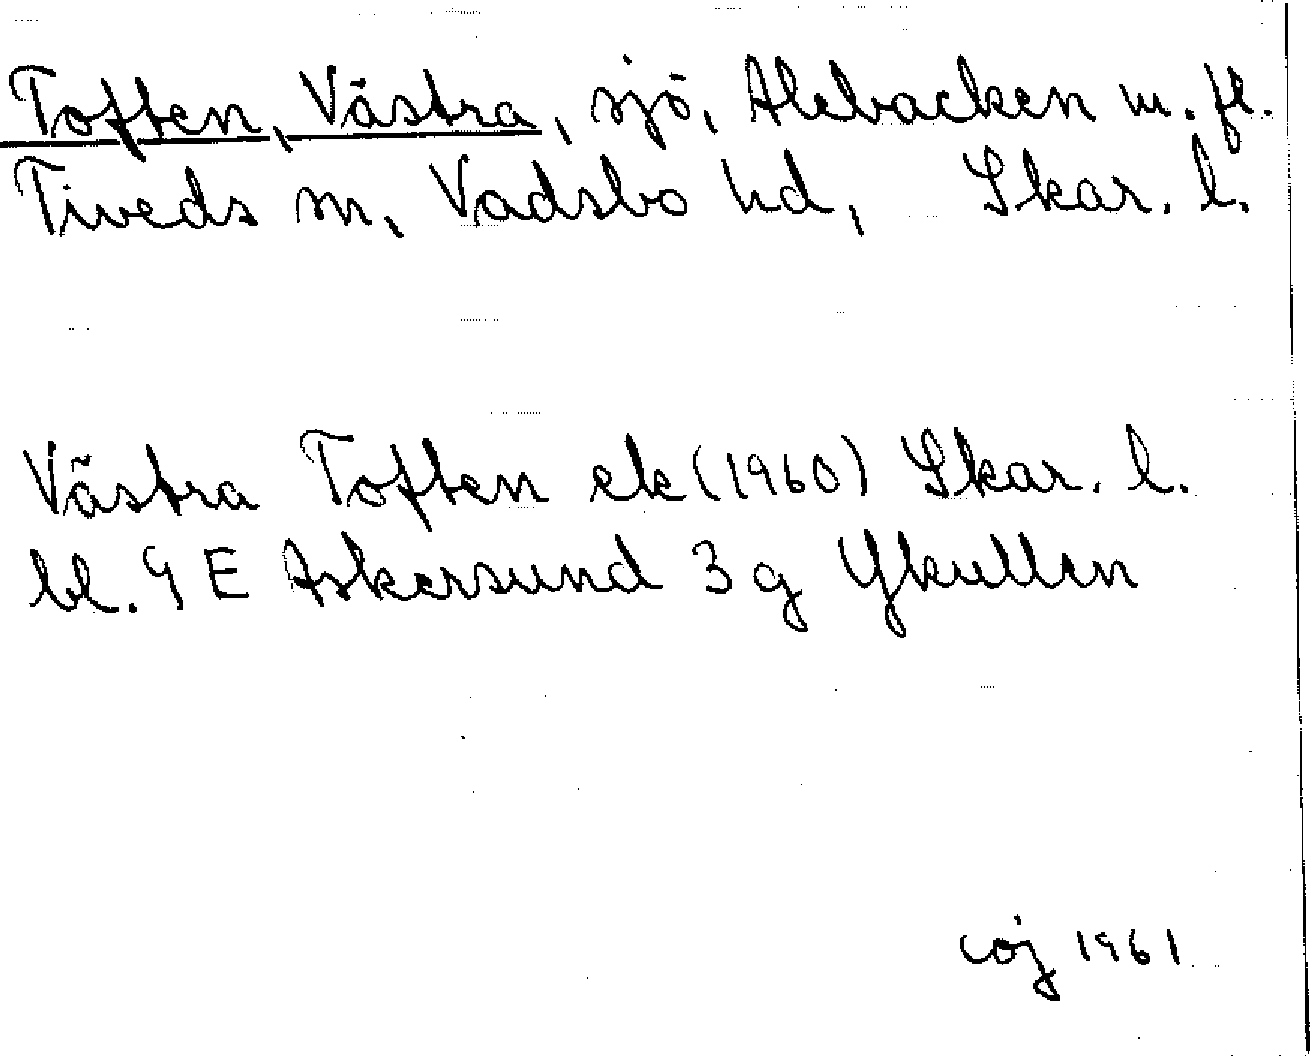 Toften, Västra, sjö, Alebacken m. fl.
Tiveds sn, Vadsbo hd, Skar. l.
Västra Toften ek (1960) Skar. l.
bl. 9 E Askersund 3 g Ykullen
coj 1961